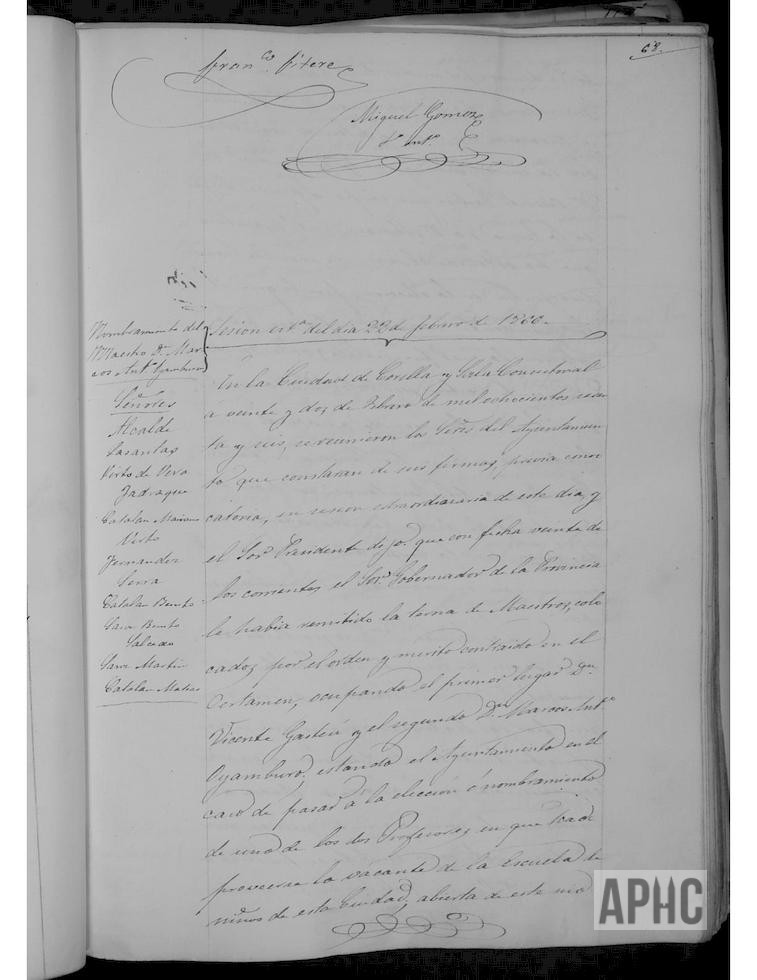 68.
Fran.co Pitere
Miguel Gomez
S. Int.o
Nombramiento del
Maestro Dn. Mar-
cos Ant.o Oyamburo
Señores
Alcalde
Lasantas
Virto de Vera
Jadraque
Catalan Mariano
Virto
Fernandez
Serra
Catalan Benito
Sanz Benito
Salcedo
Sanz Martin
Catalan Matias
Sesion extra del dia 22 de febrero de 1866.
En la Ciudad de Corella y Sala Consistorial
a veinte y dos de Febrero de mil ochocientos sesen
ta y seis, se reunieron los Sres. del Ayuntamien
to que constaran de sus firmas, previa convo
catoria, en sesion extraordinaria de este dia, y
el Sor. Presidente dijo: que con fecha veinte de
los corrientes el Sor. Gobernador de la Provincia
le habia remitido la terna de Maestros, colo
cados por el orden y merito contraido en el
Certamen, ocupando el primer lugar Dn.
Vicente Gasteiz y el segundo Dn. Marcos Ant.o
Oyamburo, estando el Ayuntamiento en el
caso de pasar á la eleccion ó nombramiento
de uno de los dos Profesores en que ha de
proveerse la vacante de la Escuela de
niños de esta Ciudad, abierta de este mo
APHC